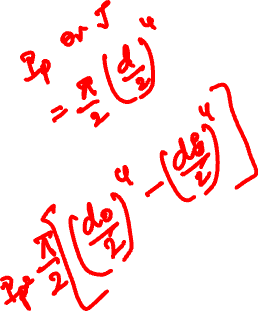 Ip or J
= π/2 (d/2)^4
Ip = π/2 [(do/2)^4 - (di/2)^4]